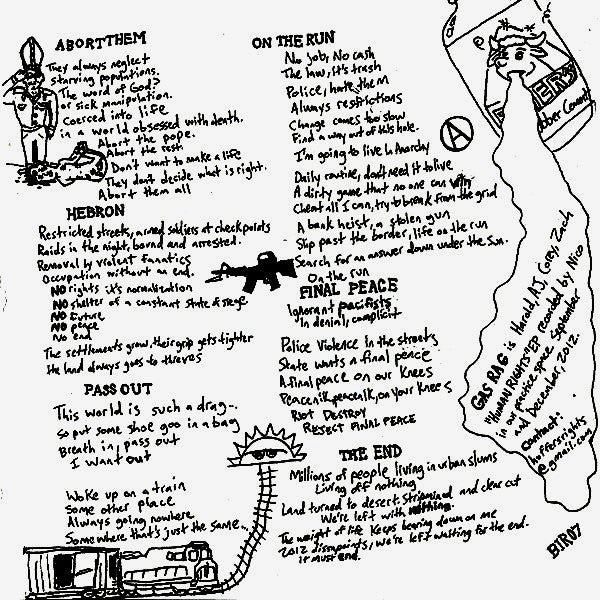 ABORT THEM
They always neglect
starving populations.
The word of God?
or sick manipulation.
Coerced into life
in a world obsessed with death.
Abort the pope.
Abort the rest
Don't want to make a life
They don't decide what is right.
Abort them all
HEBRON
Restricted streets, armed soldiers at checkpoints
Raids in the night, bound and arrested.
Removal by violent fanatics
Occupation without an end.
NO rights it's normalization
NO shelter of a constant state of siege
NO future
NO peace
No end
The settlements grow, their grip gets tighter
The land always goes to thieves
PASS OUT
This world is such a drag...
So put some shoe goo in a bag
Breath in, pass out
I want out
Woke up on a train
Some other place
Always going nowhere
Somewhere that's just the same...
ON THE RUN
No job, No cash
The law, it's trash
Police, hate them
Always restrictions
Change comes too slow
Find a way out of this hole.
I'm going to live in Anarchy
Daily routine, don't need it to live
A dirty game that no one can win
Cheat all I can, try to break from the grid
A bank heist, a stolen gun
Slip past the border, life on the run
Search for an answer down under the sun.
On the run
FINAL PEACE
Ignorant pacifists
In denial, complicit
Police Violence in the streets
State wants a final peace
A final peace on our knees
Peacenik, peacenik, on your knees
Riot Destroy
REJECT FINAL PEACE
THE END
Millions of people living in urban slums
Living off nothing
Land turned to desert. Stripmined and clear cut
We're left with nothing.
The weight of life keeps bearing down on me
2012 disappoints, we're left waiting for the end.
it must end.
A
bber Cement
GAS RAG is Harald, AJ, Corey, Zach
"HUMAN RIGHTS" EP recorded by Nico
in our practice space September
and December, 2012.
Contact:
hoffersrights
@gmail.com
BIR07